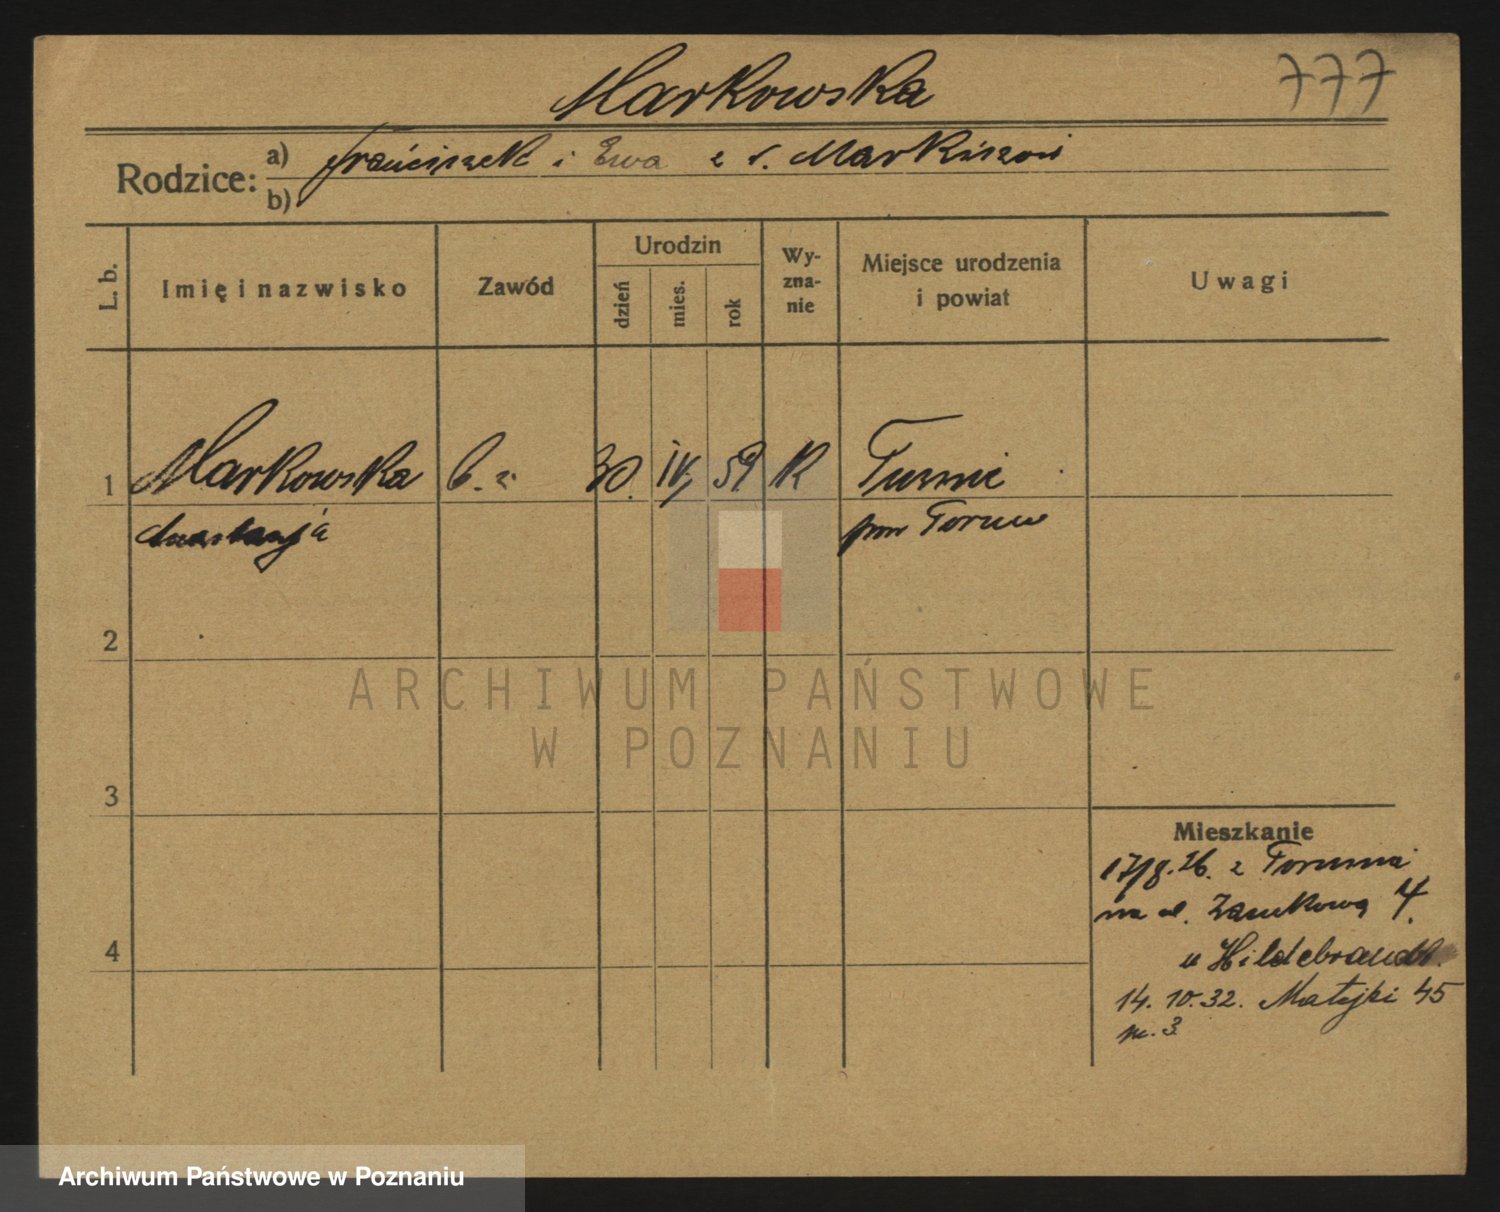 Markowska
777
Rodzice: a) Franciszek i Ewa z d.
b)
L. b.
Imię i nazwisko
Zawód
Urodzin
dzień
mies.
rok
Wy-
zna-
nie
Miejsce urodzenia
i powiat
Uwagi
1 Markowska b. z. 30. IV. 59. K
Anastazja
pow Toruń
2
3
4
ARCHIWUM PAŃSTWOWE
W POZNANIU
Mieszkanie
17/8.26. z Torunia
na ul. Zamkową 4.
u Hildebrandt.
14. 10. 32. Matejki 45
m. 3
Archiwum Państwowe w Poznaniu